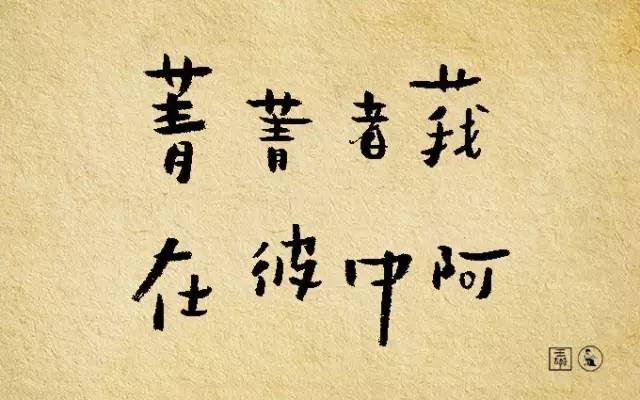 菁菁者莪
在彼中阿